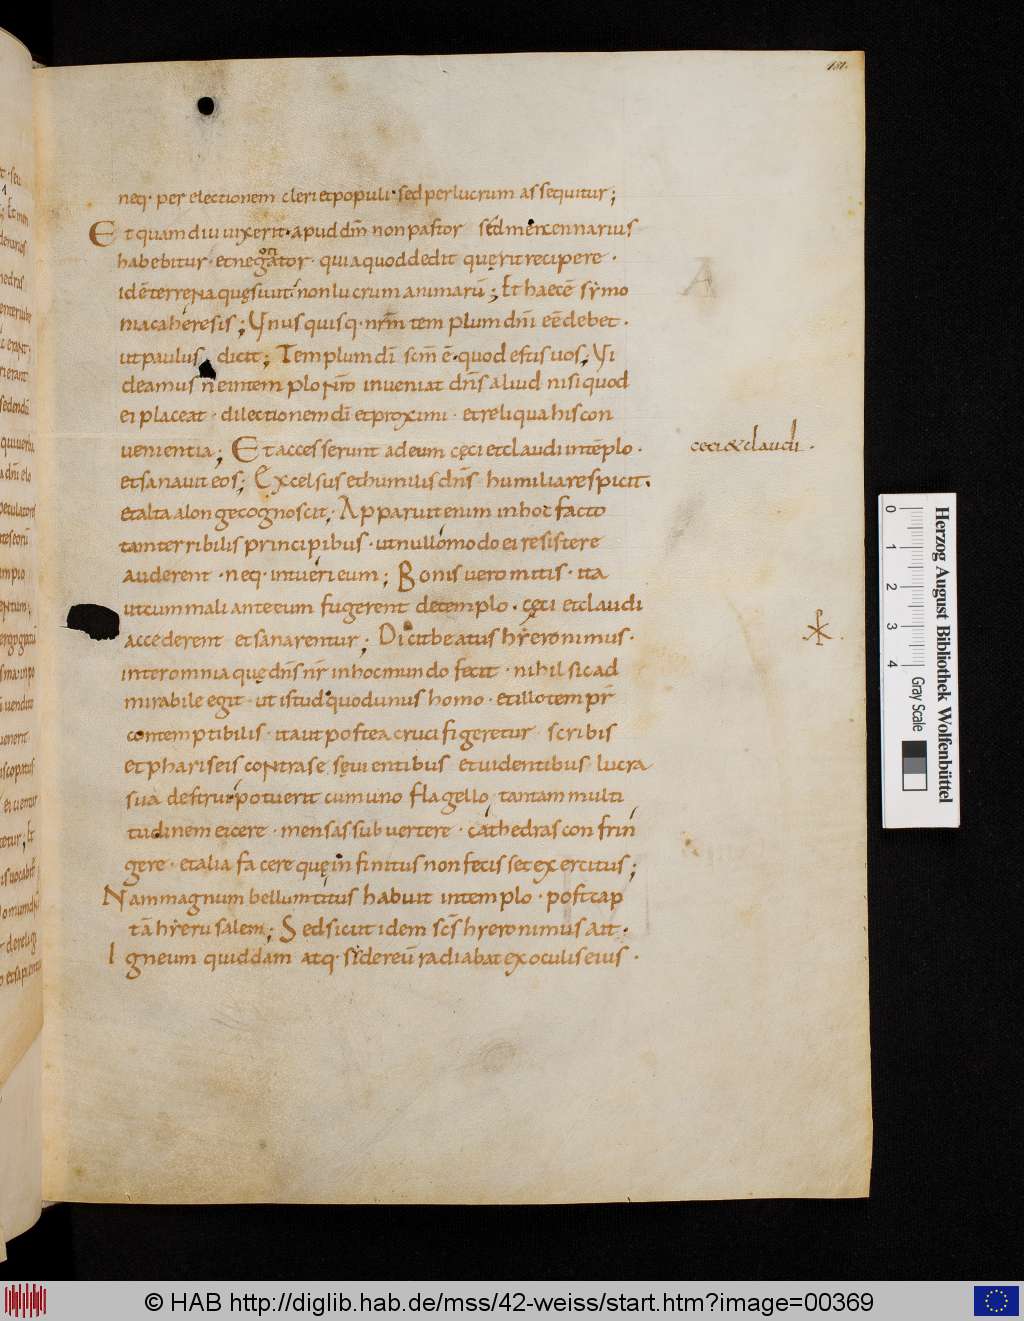 181.
neq· per electionem cleri et populi· sed per lucrum assequitur;
Et quamdiu uixerit· apud dm̄ non pastor sed mercennarius
habebitur· et negator· quia quod dedit quęrit recipere·
on
idē terrena quę siuit· non lucrum animarū; Et haec ē symo
niaca heresis; Unusquisq· nrm̄ templum dn̄i eē debet·
ut paulus dicit; Templum dī scm̄ ē· quod estis uos; Vi
deamus ne in templo nr̄o inueniat dn̄s aliud nisi quod
ei placeat· dilectionem dī et proximi· et reliqua his con
uenientia; Et accesserunt ad eum cęci et claudi in tēplo·
et sanauit eos; Excelsus et humilis dn̄s humilia respicit·
et alta a longe cognoscit; Apparuit enim in hoc facto
tam terribilis principibus· ut nullo modo ei resistere
auderent· neq· intueri eum; Bonis uero mitis· ita
ut cum mali ante eum fugerent de templo· cęci et claudi
accederent et sanarentur; Dicit beatus hyeronimus·
inter omnia quę dn̄s nr̄ in hoc mundo fecit· nihil sic ad
mirabile egit· ut istud quod unus homo· et illo tempr̄
contemptibilis· ita ut postea crucifigeretur· scribis
et phariseis contra se sęuientibus et uidentibus lucra
sua destrui potuerit cum uno flagello tantam multi
tudinem eicere· mensas subuertere· cathedras confrin
gere· et alia facere quę infinitus non fecisset exercitus;
Nam magnum bellum titus habuit in templo· post cap
tā hyerusalem; Sed sicut idem sc̄s hyeronimus ait·
Igneum quiddam atq· sydereū radiabat ex oculis eius·
cęci & claudi·
Herzog August Bibliothek Wolfenbüttel
0 1 2 3 4 Gray Scale
© HAB http://diglib.hab.de/mss/42-weiss/start.htm?image=00369